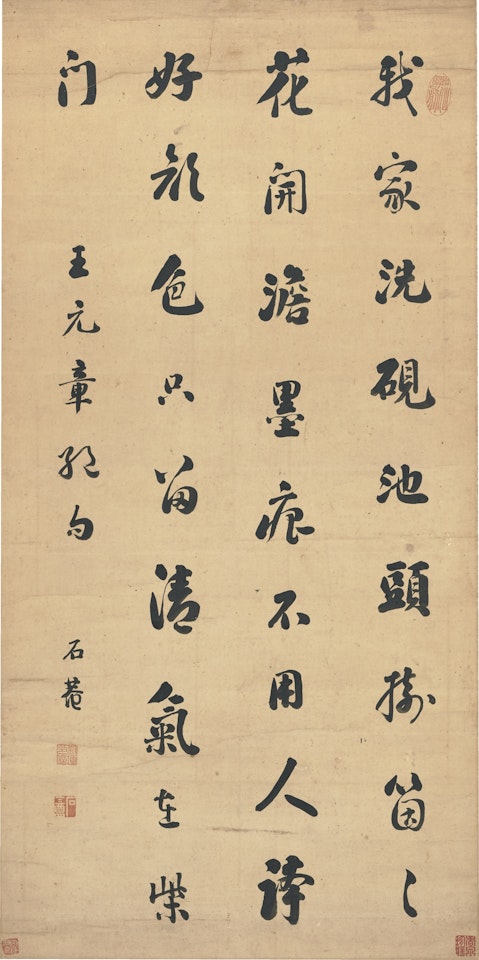 我家洗硯池頭樹箇〻
花開澹墨痕不用人誇
好顏色只留清氣在柴
门
王元章絕句
石菴